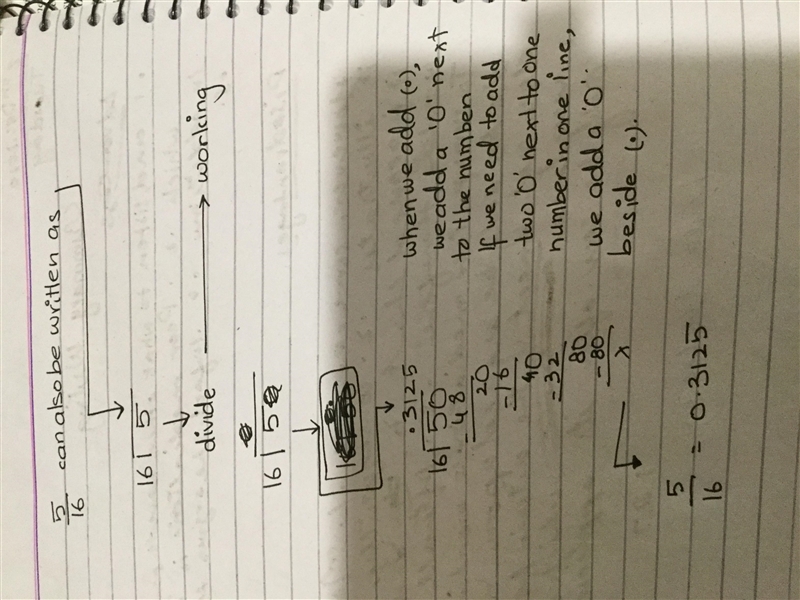 5/16 can also be written as
16 | 5
divide → working
16 | 5
.3125
16 | 50
- 48
20
- 16
40
- 32
80
- 80
x
when we add (.),
we add a '0' next
to the number
If we need to add
two '0' next to one
number in one line,
we add a '0'
beside (.).
5/16 = 0.3125